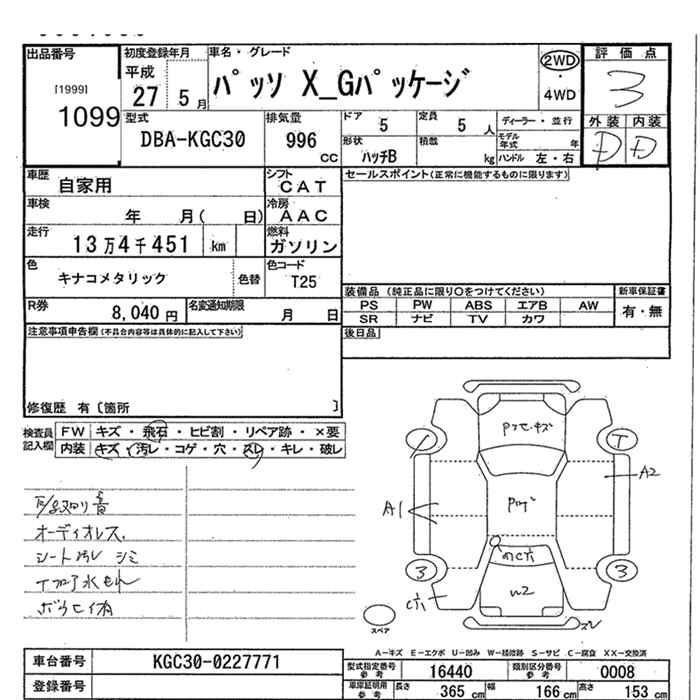 出品番号
[1999]
1099
初度登録年月
平成
27 5 月
車名・グレード
パッソ X_Gパッケージ
2WD
・
4WD
評価点
3
外装 内装
D D
型式
DBA-KGC30
排気量
996 cc
ドア 5
定員 5 人
形状 ハッチB
積載 kg
ディーラー・並行
モデル年式 年
ハンドル 左・右
車歴 自家用
シフト CAT
車検 年 月( 日)
冷房 AAC
走行 13万4千451 km
燃料 ガソリン
色 キナコメタリック 色替
色コード T25
R券 8,040 円
名変通知期限 月 日
セールスポイント(正常に機能するものに限ります)
装備品 (純正品に限り○をつけてください)
PS PW ABS エアB AW
SR ナビ TV カワ
新車保証書
有・無
後日品
注意事項申告欄(不具合内容等は具体的に記入して下さい)
修復歴 有〔箇所 〕
検査員記入欄
FW キズ・飛石・ヒビ割・リペア跡・×要
内装 キズ・汚レ・コゲ・穴・スレ・キレ・破レ
オーディオレス
シート汚レ シミ
A1
A2
T
3
3
W2
スペア
A−キズ E−エクボ U−凹み W−補修跡 S−サビ C−腐食 XX−交換済
車台番号 KGC30-0227771
登録番号
型式指定番号 参考 16440
類別区分番号 参考 0008
車庫証明用 参考 長さ 365 cm 幅 166 cm 高さ 153 cm